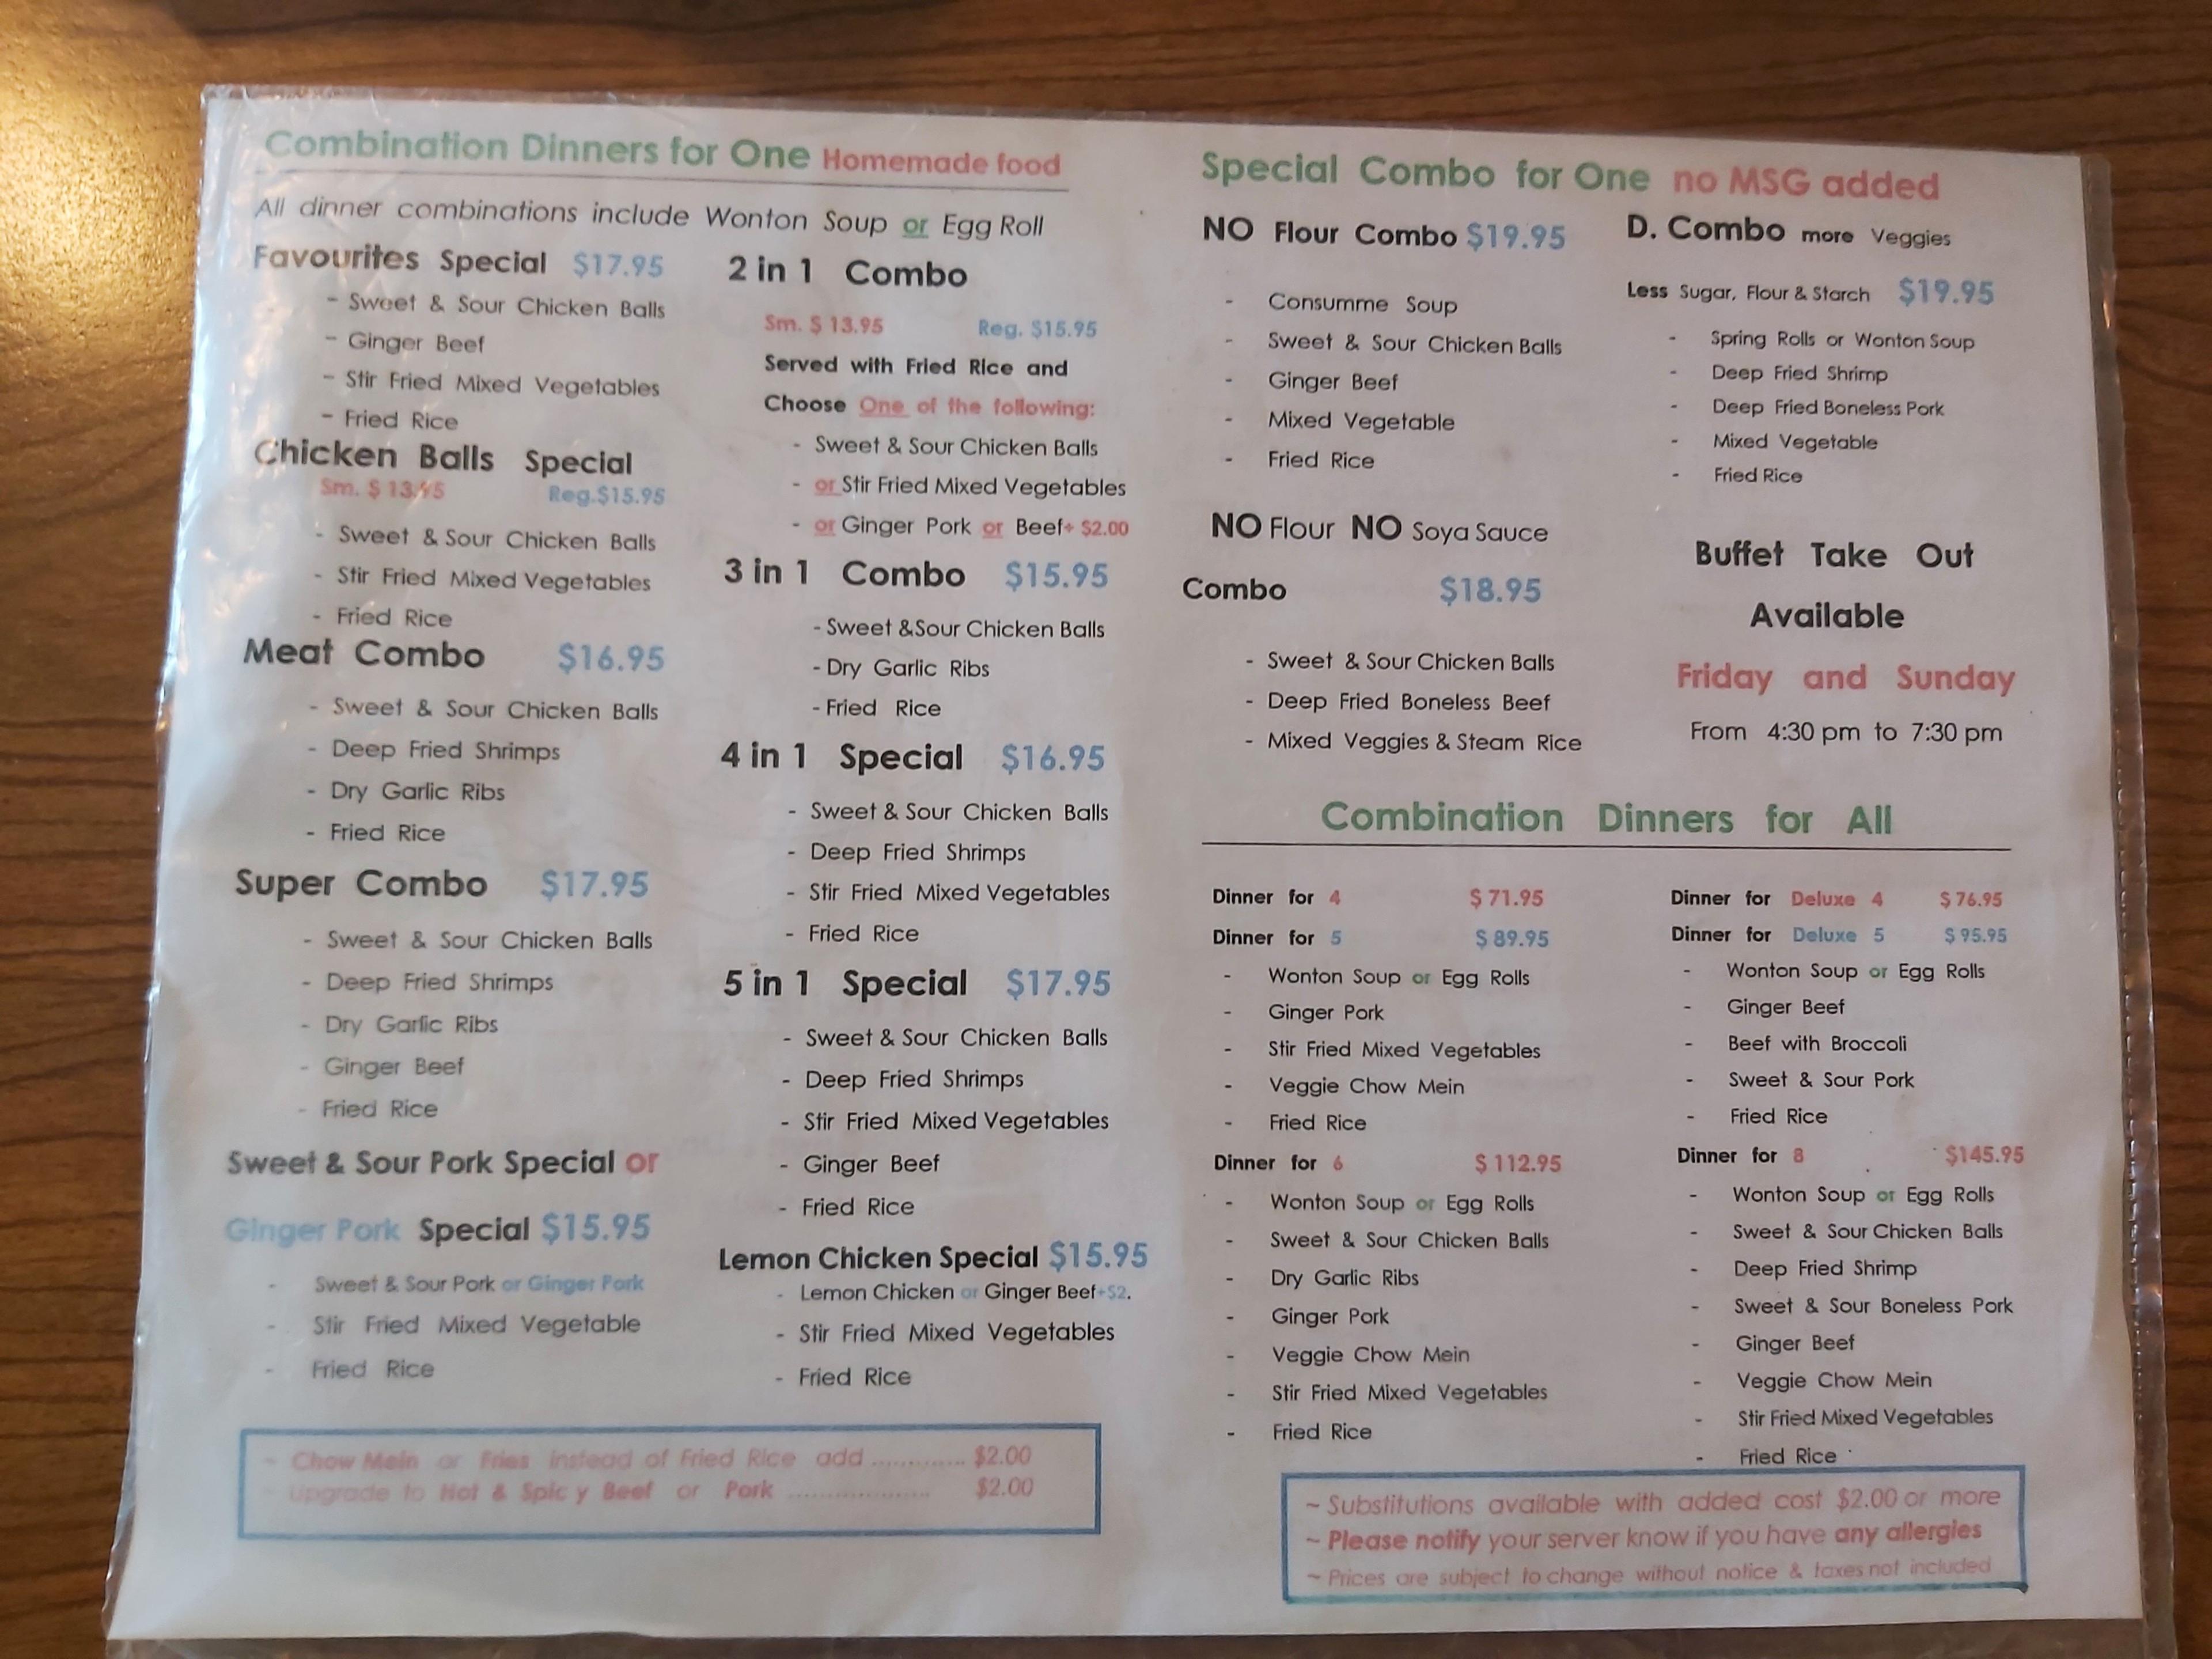 Combination Dinners for One Homemade food
All dinner combinations include Wonton Soup or Egg Roll
Favourites Special $17.95
- Sweet & Sour Chicken Balls
- Ginger Beef
- Stir Fried Mixed Vegetables
- Fried Rice
Chicken Balls Special
Sm. $ 13.95 Reg.$15.95
- Sweet & Sour Chicken Balls
- Stir Fried Mixed Vegetables
- Fried Rice
Meat Combo $16.95
- Sweet & Sour Chicken Balls
- Deep Fried Shrimps
- Dry Garlic Ribs
- Fried Rice
Super Combo $17.95
- Sweet & Sour Chicken Balls
- Deep Fried Shrimps
- Dry Garlic Ribs
- Ginger Beef
- Fried Rice
Sweet & Sour Pork Special or
Ginger Pork Special $15.95
- Sweet & Sour Pork or Ginger Pork
- Stir Fried Mixed Vegetable
- Fried Rice
2 in 1 Combo
Sm. $ 13.95 Reg. $15.95
Served with Fried Rice and
Choose One of the following:
- Sweet & Sour Chicken Balls
- or Stir Fried Mixed Vegetables
- or Ginger Pork or Beef+ $2.00
3 in 1 Combo $15.95
- Sweet &Sour Chicken Balls
- Dry Garlic Ribs
- Fried Rice
4 in 1 Special $16.95
- Sweet & Sour Chicken Balls
- Deep Fried Shrimps
- Stir Fried Mixed Vegetables
- Fried Rice
5 in 1 Special $17.95
- Sweet & Sour Chicken Balls
- Deep Fried Shrimps
- Stir Fried Mixed Vegetables
- Ginger Beef
- Fried Rice
Lemon Chicken Special $15.95
- Lemon Chicken or Ginger Beef+$2.
- Stir Fried Mixed Vegetables
- Fried Rice
~ Chow Mein or Fries instead of Fried Rice add ............. $2.00
~ upgrade to Hot & Spic y Beef or Pork .................... $2.00
Special Combo for One no MSG added
NO Flour Combo $19.95
- Consumme Soup
- Sweet & Sour Chicken Balls
- Ginger Beef
- Mixed Vegetable
- Fried Rice
NO Flour NO Soya Sauce
Combo $18.95
- Sweet & Sour Chicken Balls
- Deep Fried Boneless Beef
- Mixed Veggies & Steam Rice
D. Combo more Veggies
Less Sugar, Flour & Starch $19.95
- Spring Rolls or Wonton Soup
- Deep Fried Shrimp
- Deep Fried Boneless Pork
- Mixed Vegetable
- Fried Rice
Buffet Take Out
Available
Friday and Sunday
From 4:30 pm to 7:30 pm
Combination Dinners for All
Dinner for 4 $ 71.95
Dinner for 5 $ 89.95
- Wonton Soup or Egg Rolls
- Ginger Pork
- Stir Fried Mixed Vegetables
- Veggie Chow Mein
- Fried Rice
Dinner for 6 $ 112.95
- Wonton Soup or Egg Rolls
- Sweet & Sour Chicken Balls
- Dry Garlic Ribs
- Ginger Pork
- Veggie Chow Mein
- Stir Fried Mixed Vegetables
- Fried Rice
Dinner for Deluxe 4 $ 76.95
Dinner for Deluxe 5 $ 95.95
- Wonton Soup or Egg Rolls
- Ginger Beef
- Beef with Broccoli
- Sweet & Sour Pork
- Fried Rice
Dinner for 8 $145.95
- Wonton Soup or Egg Rolls
- Sweet & Sour Chicken Balls
- Deep Fried Shrimp
- Sweet & Sour Boneless Pork
- Ginger Beef
- Veggie Chow Mein
- Stir Fried Mixed Vegetables
- Fried Rice
~ Substitutions available with added cost $2.00 or more
~ Please notify your server know if you have any allergies
~ Prices are subject to change without notice & taxes not included